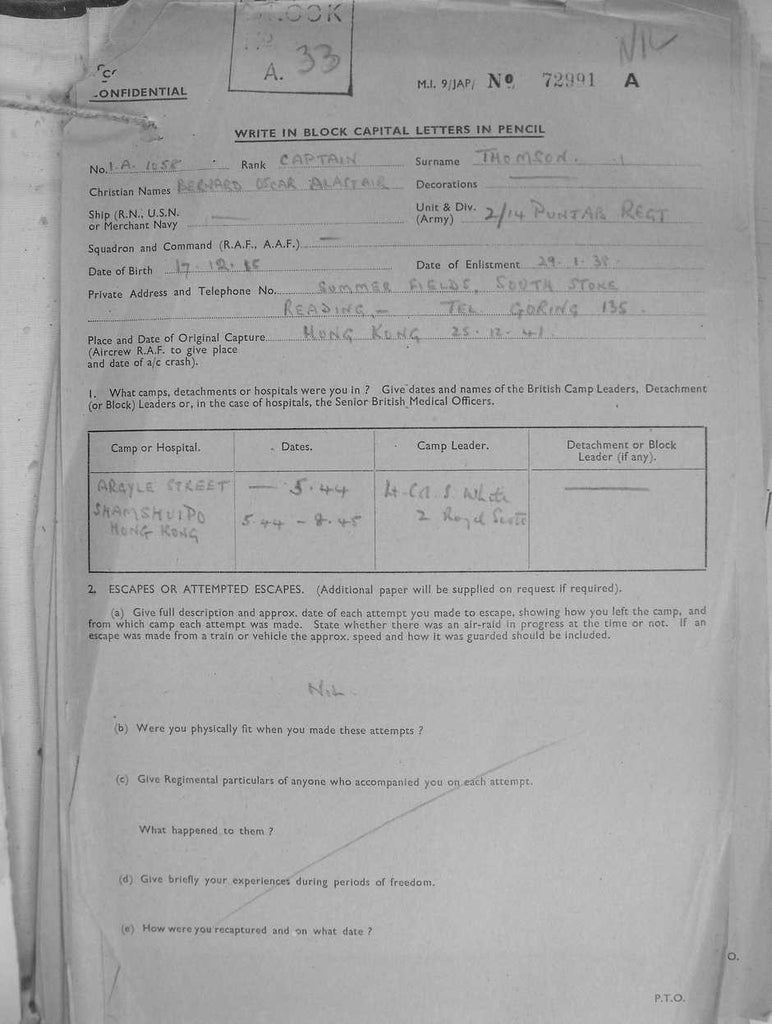 NIL
A. 33
CONFIDENTIAL
M.I. 9/JAP/ No 72991 A
WRITE IN BLOCK CAPITAL LETTERS IN PENCIL
No. I.A. 1058 Rank CAPTAIN Surname THOMSON.
Christian Names BERNARD OSCAR ALASTAIR Decorations
Ship (R.N., U.S.N. or Merchant Navy
Unit & Div. (Army) 2/14 PUNJAB REGT
Squadron and Command (R.A.F., A.A.F.)
Date of Birth 17-12-15 Date of Enlistment 29-1-38
Private Address and Telephone No. SUMMER FIELDS, SOUTH STOKE
READING, – TEL. GORING 135.
Place and Date of Original Capture HONG KONG 25-12-41
(Aircrew R.A.F. to give place
and date of a/c crash).
1. What camps, detachments or hospitals were you in ? Give dates and names of the British Camp Leaders, Detachment
(or Block) Leaders or, in the case of hospitals, the Senior British Medical Officers.
Camp or Hospital. Dates. Camp Leader. Detachment or Block Leader (if any).
ARGYLE STREET — 5.44 Lt-Col S. White
SHAMSHUIPO 5.44 – 8.45 2 Royal Scots
HONG KONG
2. ESCAPES OR ATTEMPTED ESCAPES. (Additional paper will be supplied on request if required).
(a) Give full description and approx. date of each attempt you made to escape, showing how you left the camp, and
from which camp each attempt was made. State whether there was an air-raid in progress at the time or not. If an
escape was made from a train or vehicle the approx. speed and how it was guarded should be included.
NIL.
(b) Were you physically fit when you made these attempts ?
(c) Give Regimental particulars of anyone who accompanied you on each attempt.
What happened to them ?
(d) Give briefly your experiences during periods of freedom.
(e) How were you recaptured and on what date ?
O.
P.T.O.